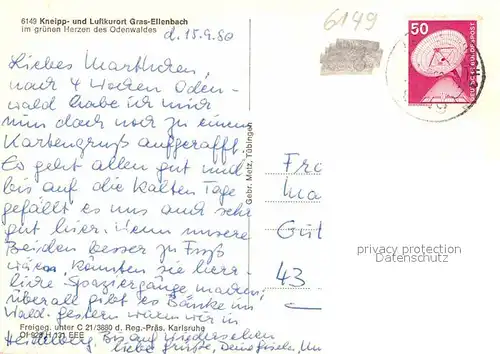 6149 Kneipp- und Luftkurort Gras-Ellenbach
im grünen Herzen des Odenwaldes
d. 15.9.80
6149
50
DEUTSCHE BUNDESPOST
Liebes
nach 4 Wochen Oden-
wald habe ich mich
nun doch noch zu einem
Kartengruß aufgerafft.
Es geht allen gut und
bis auf die kalten Tage
gefällt es uns auch sehr
gut hier. Wenn unsere
Beiden besser zu Fuß
wären, könnten sie herr-
liche Spaziergänge machen,
überall gibt es Bänke im
Wald. gestern waren wir in
Heidelberg. Bis auf Wiedersehen
liebe Grüße, Deine Gisela.
Gebr. Metz, Tübingen
Fr
Ma
Güt
43
privacy protection
Datenschutz
Freigeg. unter C 21/3880 d. Reg.-Präs. Karlsruhe